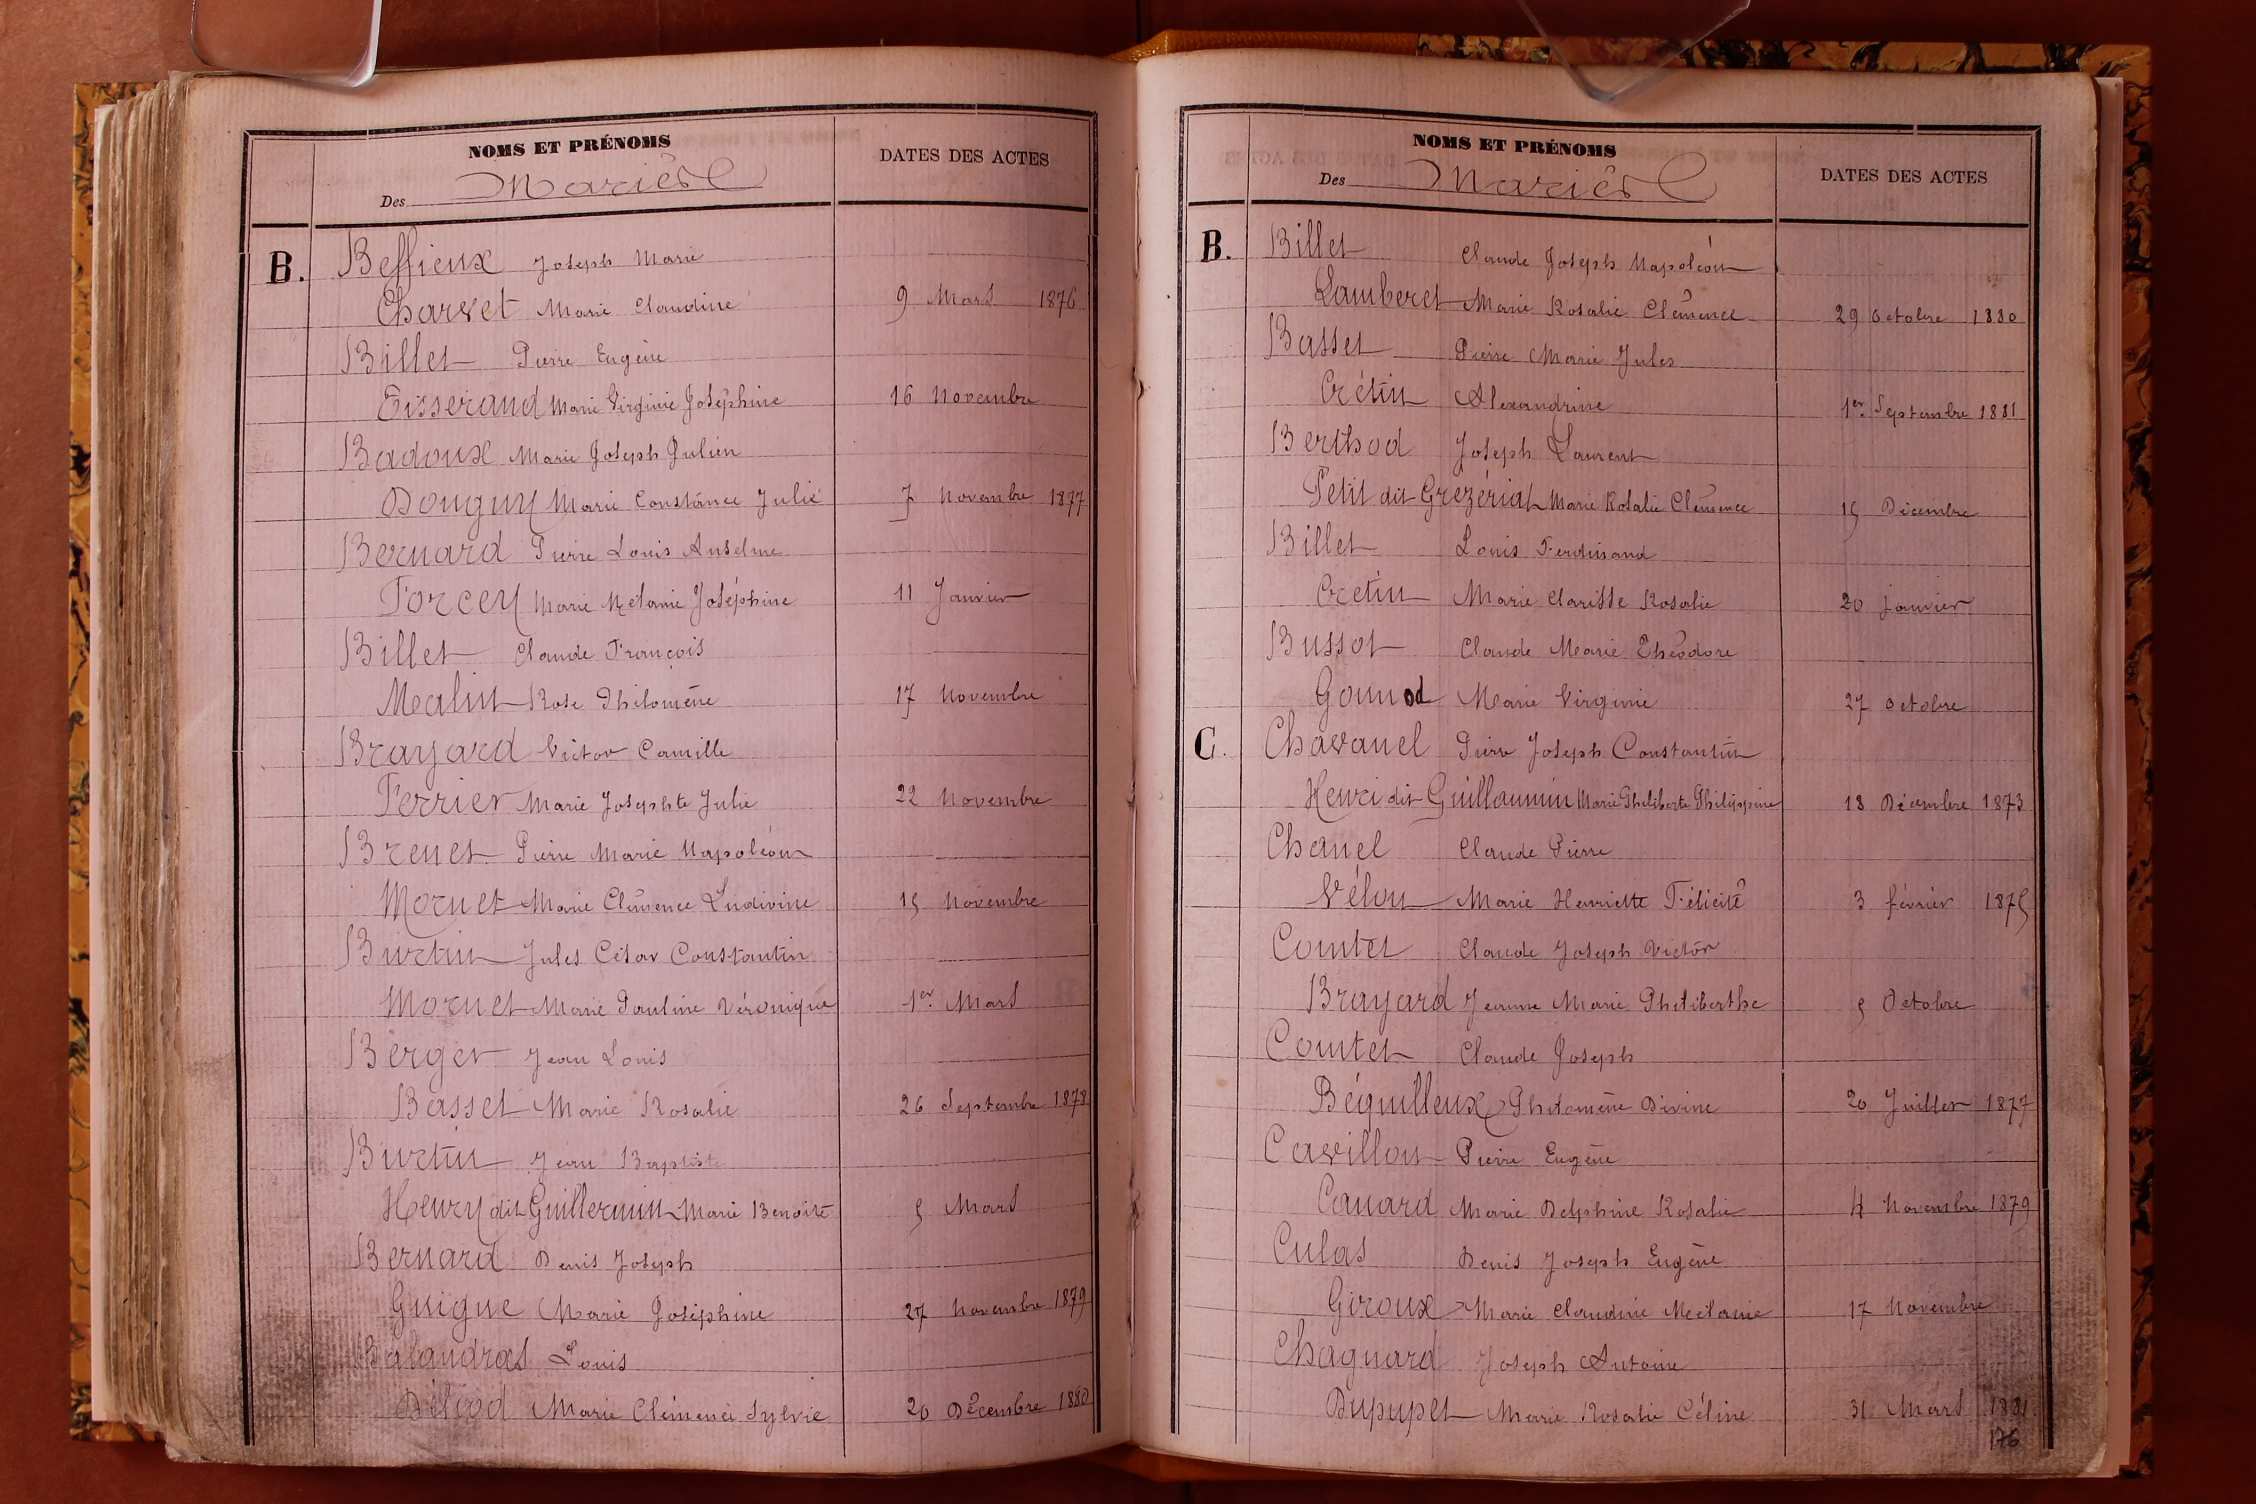 NOMS ET PRÉNOMS
Des Mariés
DATES DES ACTES
B. Beffieux Joseph Marie
Charvet Marie Claudine 9 Mars 1876
Billet Pierre Eugène
Tisserand Marie Virginie Joséphine 16 Novembre
Badoux Marie Joseph Julien
Douguy Marie Constance Julie 7 Novembre 1877
Bernard Pierre Louis Anselme
Forcey Marie Mélanie Joséphine 11 Janvier
Billet Claude François
Mealin Rose Philomène 17 Novembre
Brayard Victor Camille
Ferrier Marie Josephte Julie 22 Novembre
Brenet Pierre Marie Napoléon
Mornet Marie Clémence Ludivine 15 Novembre
Burtin Jules César Constantin
Mornet Marie Pauline Véronique 1er Mars
Berger Jean Louis
Basset Marie Rosalie 26 Septembre 1878
Burtin Jean Baptiste
Henry dit Guillermin Marie Benoite 5 Mars
Bernard Denis Joseph
Guigue Marie Joséphine 27 Novembre 1879
Balandras Louis
Marie Clémence Sylvie 20 Décembre 1880
NOMS ET PRÉNOMS
Des Mariés
DATES DES ACTES
B. Billet Claude Joseph Napoléon
Lamberet Marie Rosalie Clémence 29 Octobre 1880
Basset Pierre Marie Jules
Crétin Alexandrine 1er Septembre 1881
Berthod Joseph Laurent
Petit dit Grezériat Marie Rosalie Clémence 15 Décembre
Billet Louis Ferdinand
Cretin Marie Clarisse Rosalie 20 janvier
Bussot Claude Marie Théodore
Gounod Marie Virginie 27 Octobre
C. Chavanel Pierre Joseph Constantin
Henri dit Guillaumin Marie Philiberte Philippine 18 Décembre 1873
Chanel Claude Pierre
Vélon Marie Henriette Félicité 3 février 1875
Comtet Claude Joseph Victor
Brayard Jeanne Marie Philiberthe 5 Octobre
Comtet Claude Joseph
Béguilleux Philomène Divine 20 Juillet 1877
Cavillon Pierre Eugène
Canard Marie Delphine Rosalie 4 Novembre 1879
Culas Denis Joseph Eugène
Giroux Marie Claudine Mélanie 17 Novembre
Chagnard Joseph Antoine
Dupupet Marie Rosalie Céline 31 Mars 1881
176